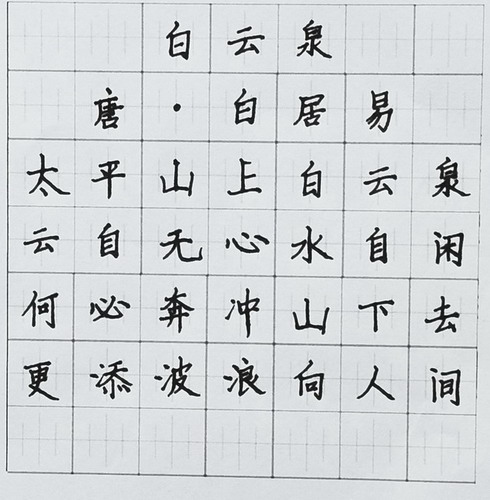 白云泉
唐·白居易
太平山上白云泉
云自无心水自闲
何必奔冲山下去
更添波浪向人间